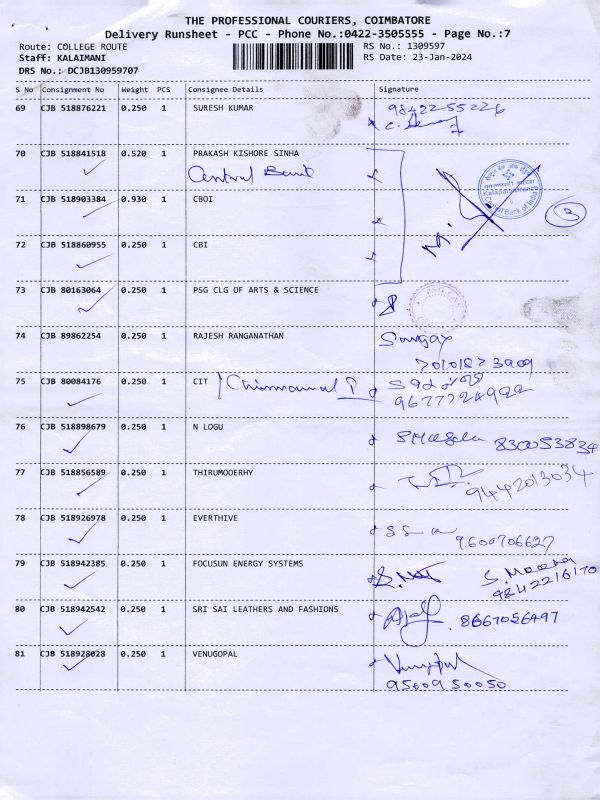 THE PROFESSIONAL COURIERS, COIMBATORE
Delivery Runsheet - PCC - Phone No.:0422-3505555 - Page No.:7
Route: COLLEGE ROUTE RS No.: 1309597
Staff: KALAIMANI RS Date: 23-Jan-2024
DRS No.: DCJB130959707
S No Consignment No Weight PCS Consignee Details Signature
69 CJB 518876221 0.250 1 SURESH KUMAR 98422-55226
70 CJB 518841518 0.520 1 PRAKASH KISHORE SINHA
Central Bank
71 CJB 518903384 0.930 1 CBOI 3
72 CJB 518860955 0.250 1 CBI
73 CJB 80163064 0.250 1 PSG CLG OF ARTS & SCIENCE
74 CJB 89862254 0.250 1 RAJESH RANGANATHAN Sanjay
7010187 3909
75 CJB 80084176 0.250 1 CIT
9677724922
76 CJB 518898679 0.250 1 N LOGU 830053834
77 CJB 518856589 0.250 1 THIRUMOOERHY
9442013034
78 CJB 518926978 0.250 1 EVERTHIVE
9600706627
79 CJB 518942385 0.250 1 FOCUSUN ENERGY SYSTEMS S. Meena
9242216170
80 CJB 518942542 0.250 1 SRI SAI LEATHERS AND FASHIONS 8667056497
81 CJB 518928028 0.250 1 VENUGOPAL Venugopal
9500950050